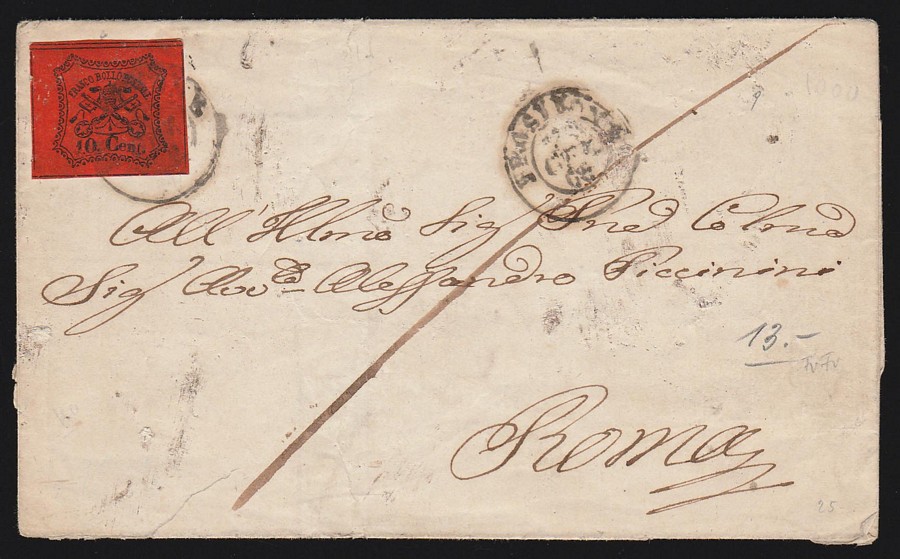 FRANCO BOLLO POSTALE
10 Cent.
FROSINONE
All' Illmo Sig Pne Colmo
Sig Avv.to Alessandro Piccinini
Roma
13.-
1000
25